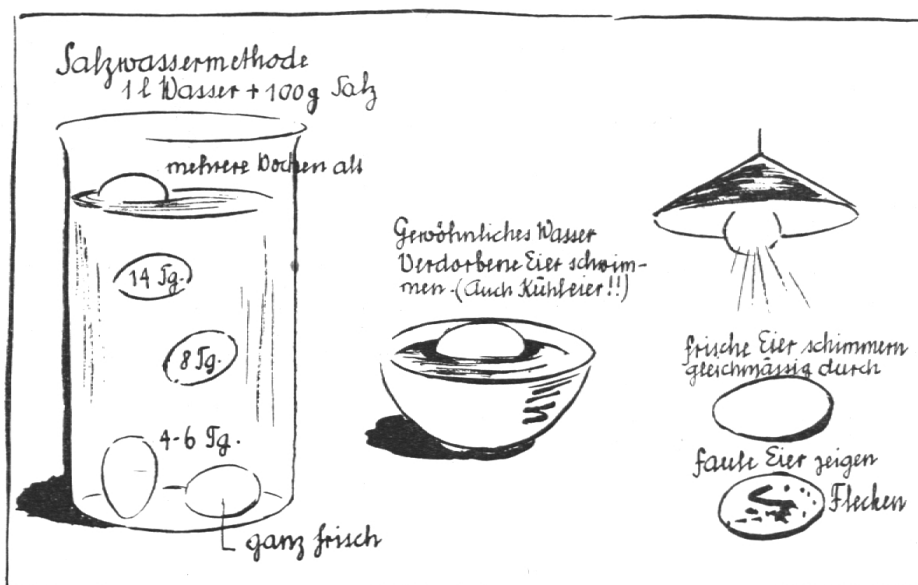 Salzwassermethode
1 l Wasser + 100 g Salz
mehrere Wochen alt
14 Tg.
8 Tg.
4-6 Tg.
ganz frisch
Gewöhnliches Wasser
Verdorbene Eier schwim-
men. (Auch Kühleier!!)
frische Eier schimmern
gleichmässig durch
faule Eier zeigen
Flecken